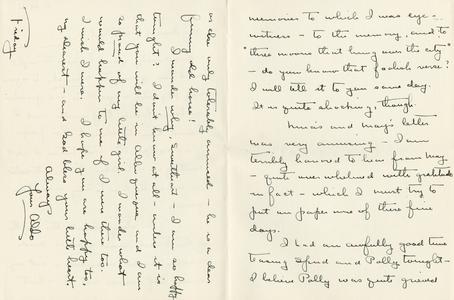 memories to which I was eye-
witness – to the memory, and to
"three moons that hung over the city"
– do you know that foolish verse?
I will tell it to you some day.
It is quite shocking, though.
and May's letter
was very amusing – I am
terribly honored to hear from May
– quite overwhelmed with gratitude
in fact – which I must try to
put on paper one of these fine
days.
I had an awfully good time
taking and Polly tonight –
I believe Polly was quite
as she only tolerably amused – he is a dear
funny old horse!
I wonder why, Sweetheart – I am so happy
tonight? I don't know at all unless it is
that you will be in and I am
so proud of my little girl. I wonder what
would happen to me if I were there too.
I wish I were. I hope you are happy too,
my dearest – and God bless your little heart.
Always
Your Aldo
Friday